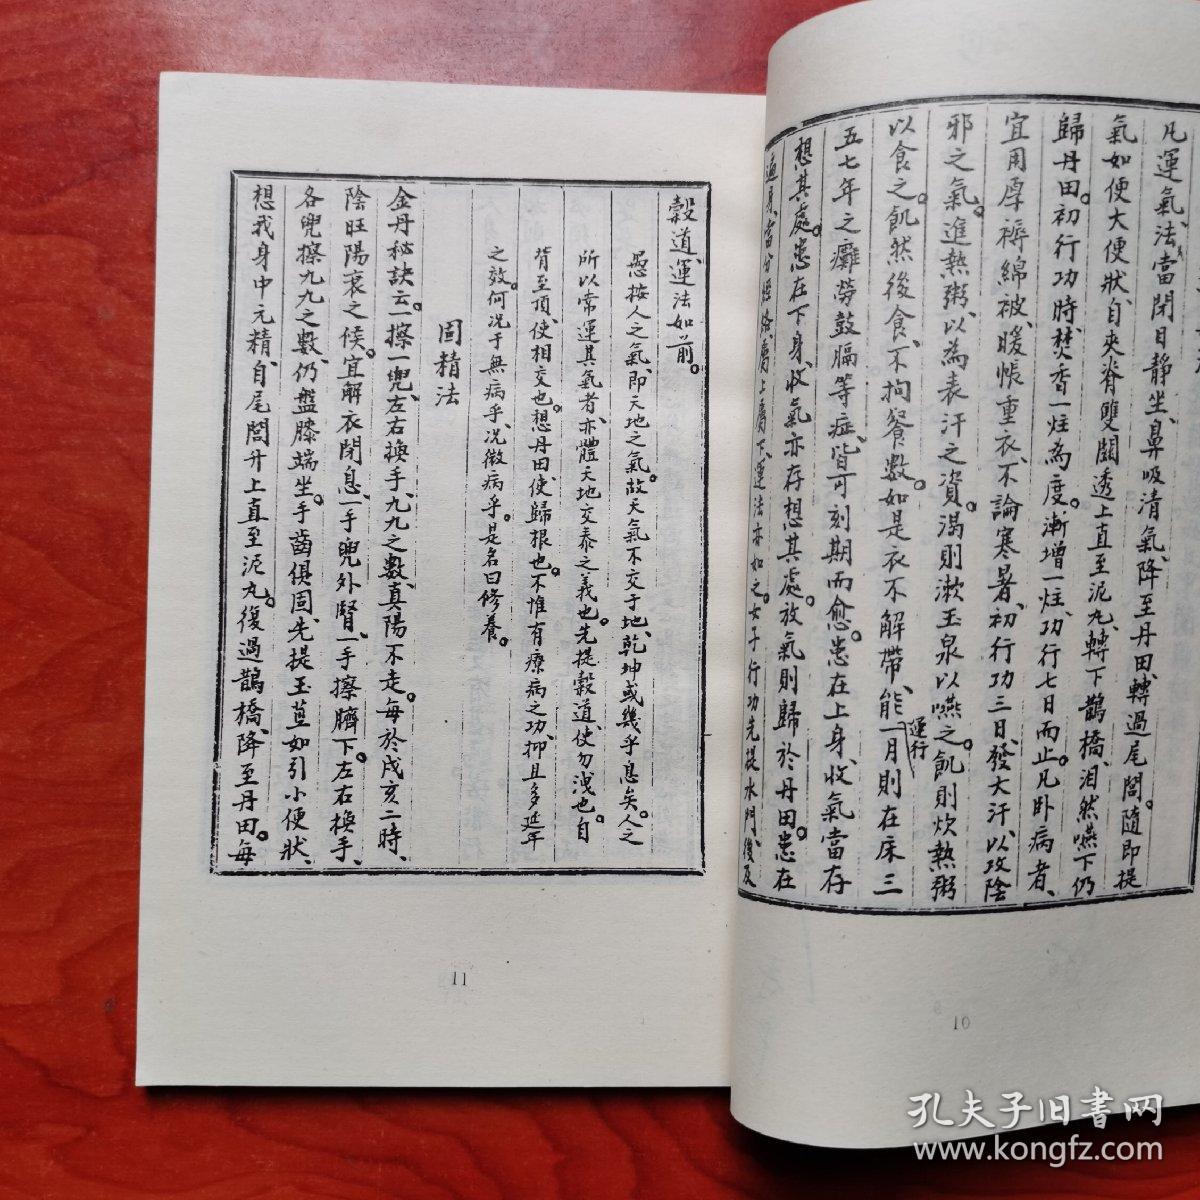 凡運氣、法當閉目靜坐、鼻吸清氣、降至丹田、轉過尾閭。隨即提
氣如便大便狀、自夾脊雙關透上直至泥丸、轉下鵲橋、汨然嚥下仍
歸丹田。初行功時、焚香一炷為度。漸增一炷、功行七日而止。凡卧病者、
宜用厚褥綿被、暖帳重衣、不論寒暑、初行功三日、發大汗、以攻陰
邪之氣。進熱粥、以為表汗之資。渴則漱玉泉以嚥之。飢則炊熱粥
以食之。飢然後食、不拘餐數。如是衣不解帶、能運行一月則在床三
五七年之癱勞鼓膈等症、皆可刻期而愈。患在上身、收氣當存
想其處。患在下身、收氣亦存想其處。放氣則歸於丹田。患在
遍身、當分經絡、屬上屬下、運法亦如之。女子行功、先提水門、後及
10
穀道、運法如前。
愚按人之氣、即天地之氣。故天氣不交于地、乾坤或幾乎息矣。人之
所以常運其氣者、亦體天地交泰之義也。先提穀道、使勿洩也。自
背至頂、使相交也。想丹田、使歸根也。不惟有療病之功、抑且多延年
之效。何況于無病乎、況微病乎。是名曰修養。
固精法
金丹秘訣云。一擦一兜、左右換手、九九之數、真陽不走。每於戌亥二時、
陰旺陽衰之候。宜解衣閉息、一手兜外腎、一手擦臍下。左右換手、
各兜擦九九之數、仍盤膝端坐。手齒俱固。先提玉莖如引小便狀、
想我身中元精、自尾閭升上直至泥丸。復過鵲橋、降至丹田。每
11
孔夫子旧书网
www.kongfz.com